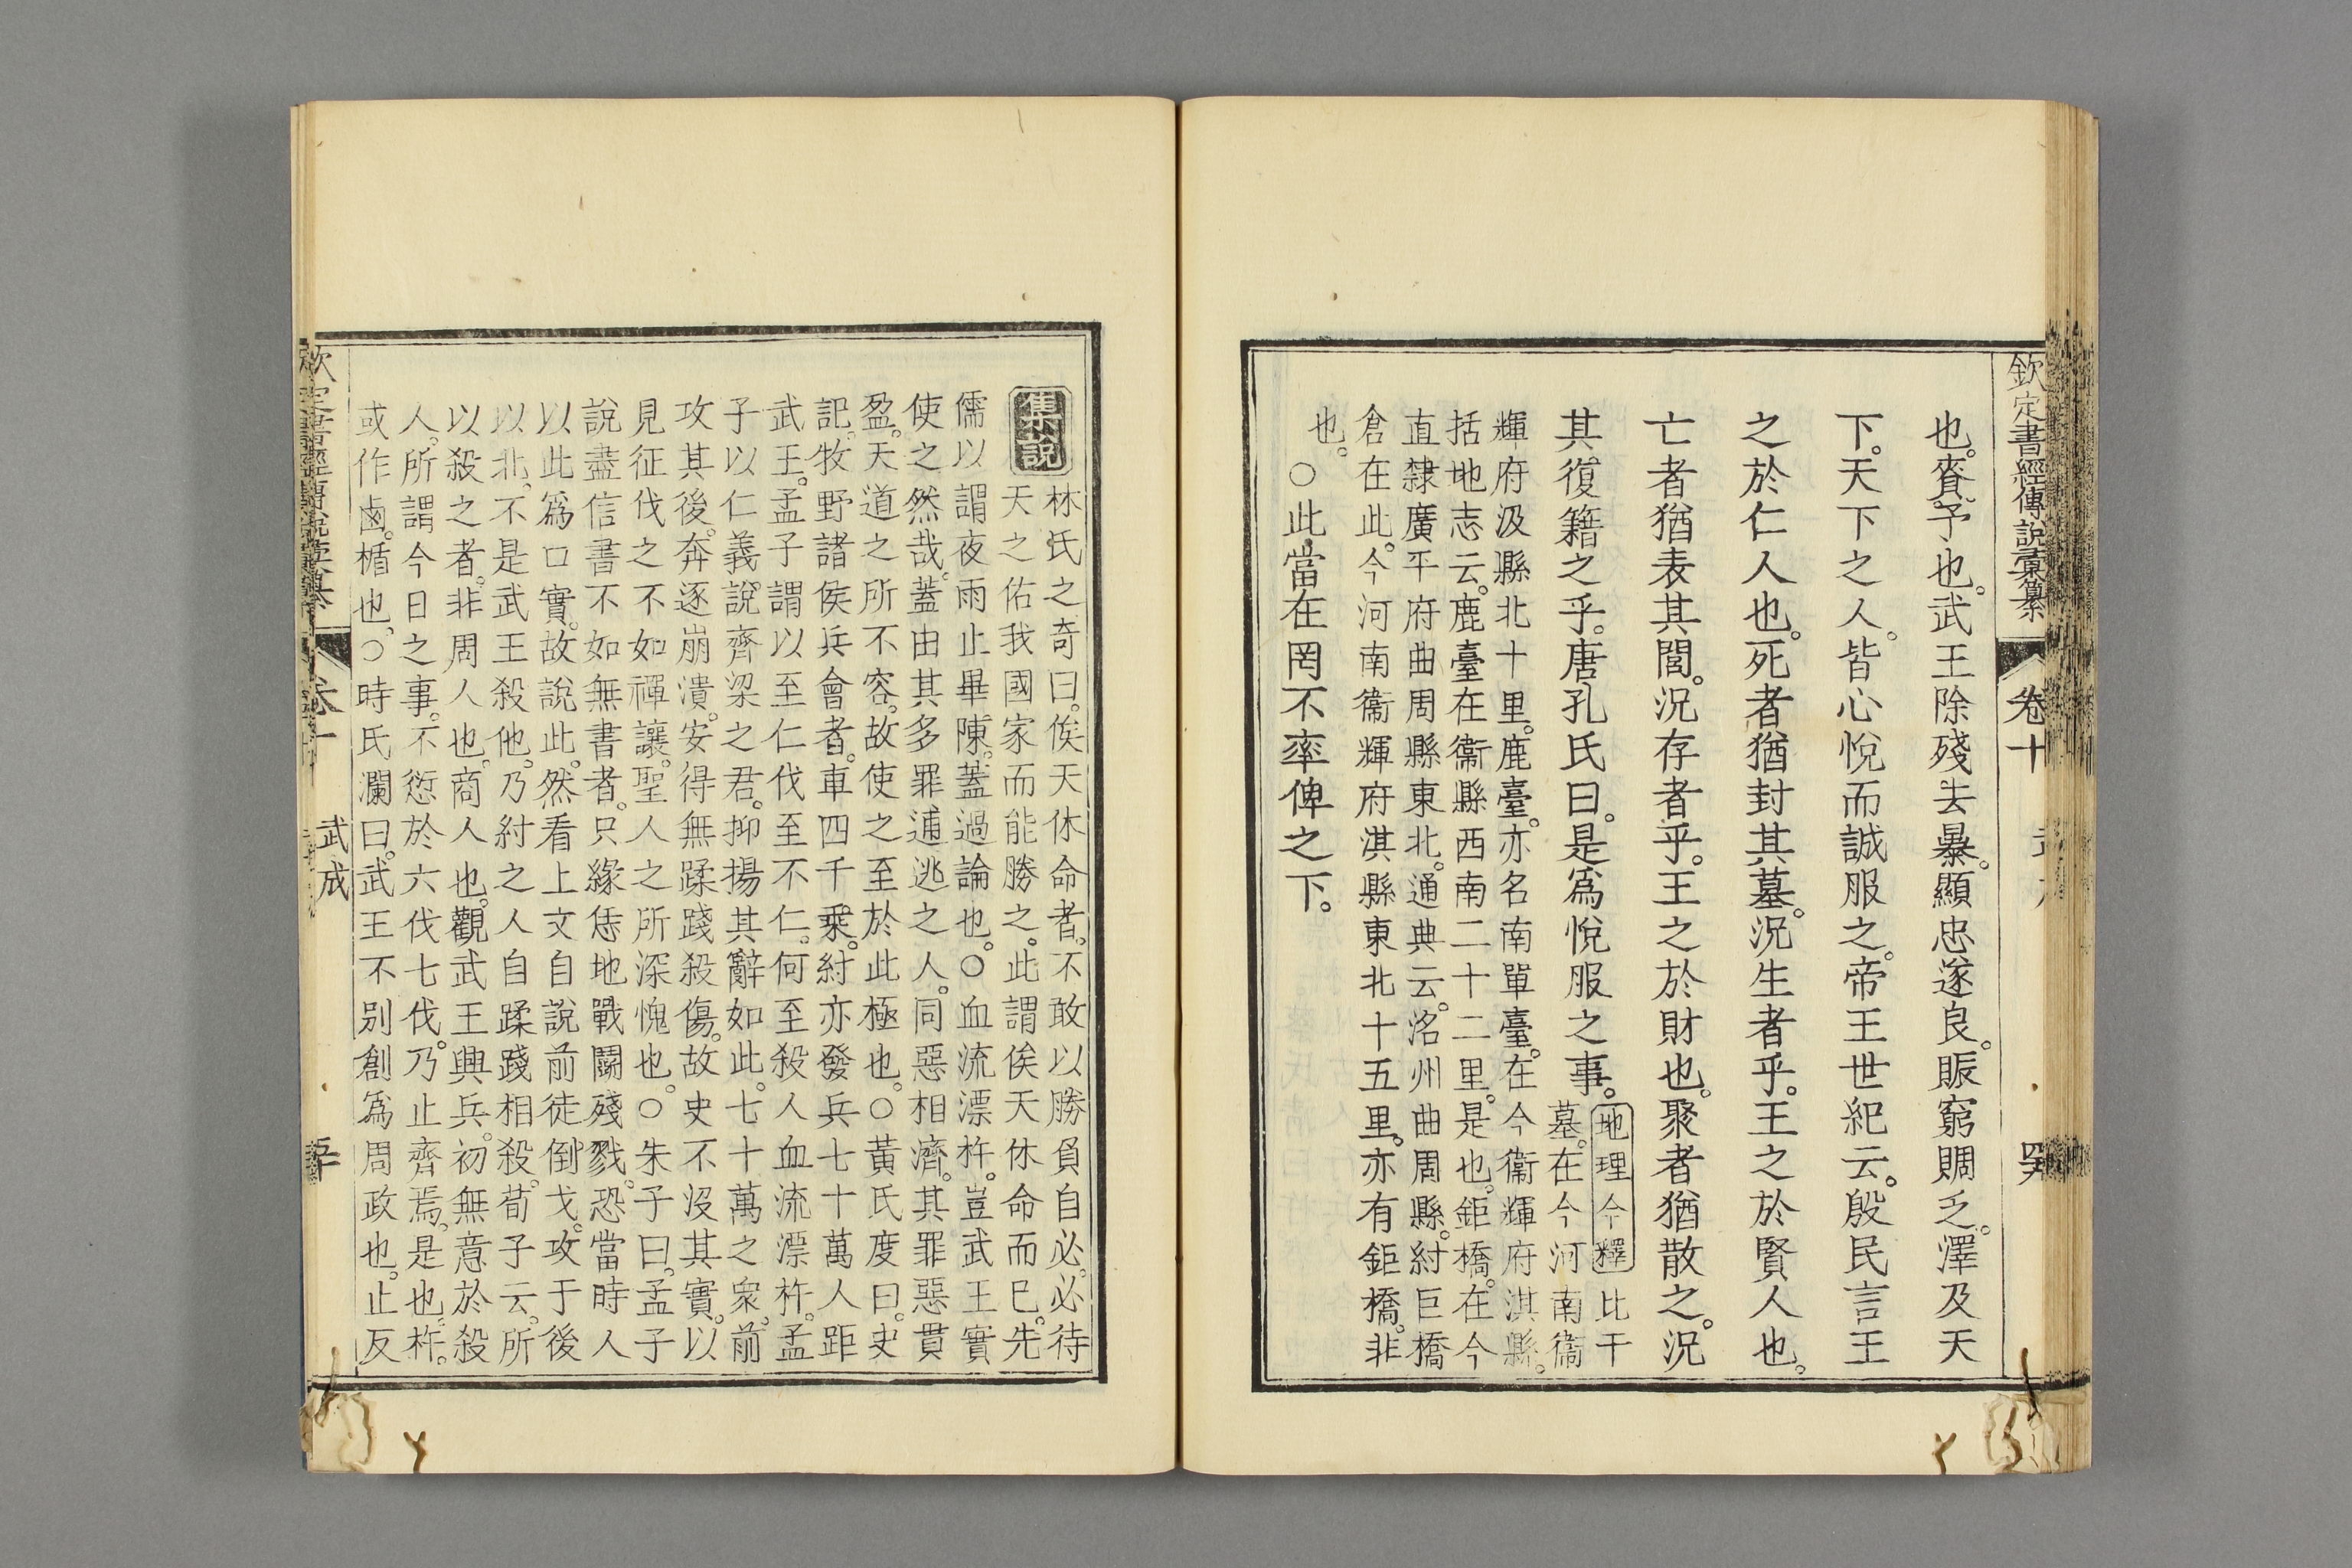 欽定書經傳說彙纂 卷十
也。賚。予也。武王除殘去暴。顯忠遂良。賑窮賙乏。澤及天
下。天下之人。皆心悅而誠服之。帝王世紀云。殷民言王
之於仁人也。死者猶封其墓。況生者乎。王之於賢人也。
亡者猶表其閭。況存者乎。王之於財也。聚者猶散之。況
其復籍之乎。唐孔氏曰。是爲悅服之事。
地理今釋 比干
墓。在今河南衞
輝府汲縣北十里。鹿臺。亦名南單臺。在今衞輝府淇縣。
括地志云。鹿臺在衞縣西南二十二里。是也。鉅橋。在今
直隸廣平府曲周縣東北。通典云。洺州曲周縣。紂巨橋
倉在此。今河南衞輝府淇縣東北十五里。亦有鉅橋。非
也。
○此當在罔不率俾之下。
集說
林氏之奇曰。俟天休命者。不敢以勝負自必。必待
天之佑我國家而能勝之。此謂俟天休命而已。先
儒以謂夜雨止畢陳。蓋過論也。○血流漂杵。豈武王實
使之然哉。蓋由其多罪逋逃之人。同惡相濟。其罪惡貫
盈。天道之所不容。故使之至於此極也。○黃氏度曰。史
記。牧野諸侯兵會者。車四千乘。紂亦發兵七十萬人距
武王。孟子謂以至仁伐至不仁。何至殺人血流漂杵。孟
子以仁義說齊梁之君。抑揚其辭如此。七十萬之衆。前
攻其後。奔逐崩潰。安得無蹂踐殺傷。故史不沒其實。以
見征伐之不如禪讓。聖人之所深愧也。○朱子曰。孟子
說盡信書不如無書者。只緣恁地戰鬭殘戮。恐當時人
以此爲口實。故說此。然看上文自說前徒倒戈。攻于後
以北。不是武王殺他。乃紂之人自蹂踐相殺。荀子云。所
以殺之者。非周人也。商人也。觀武王興兵。初無意於殺
人。所謂今日之事。不愆於六伐七伐。乃止齊焉。是也。杵。
或作鹵。楯也。○時氏瀾曰。武王不别創爲周政也。止反
武成